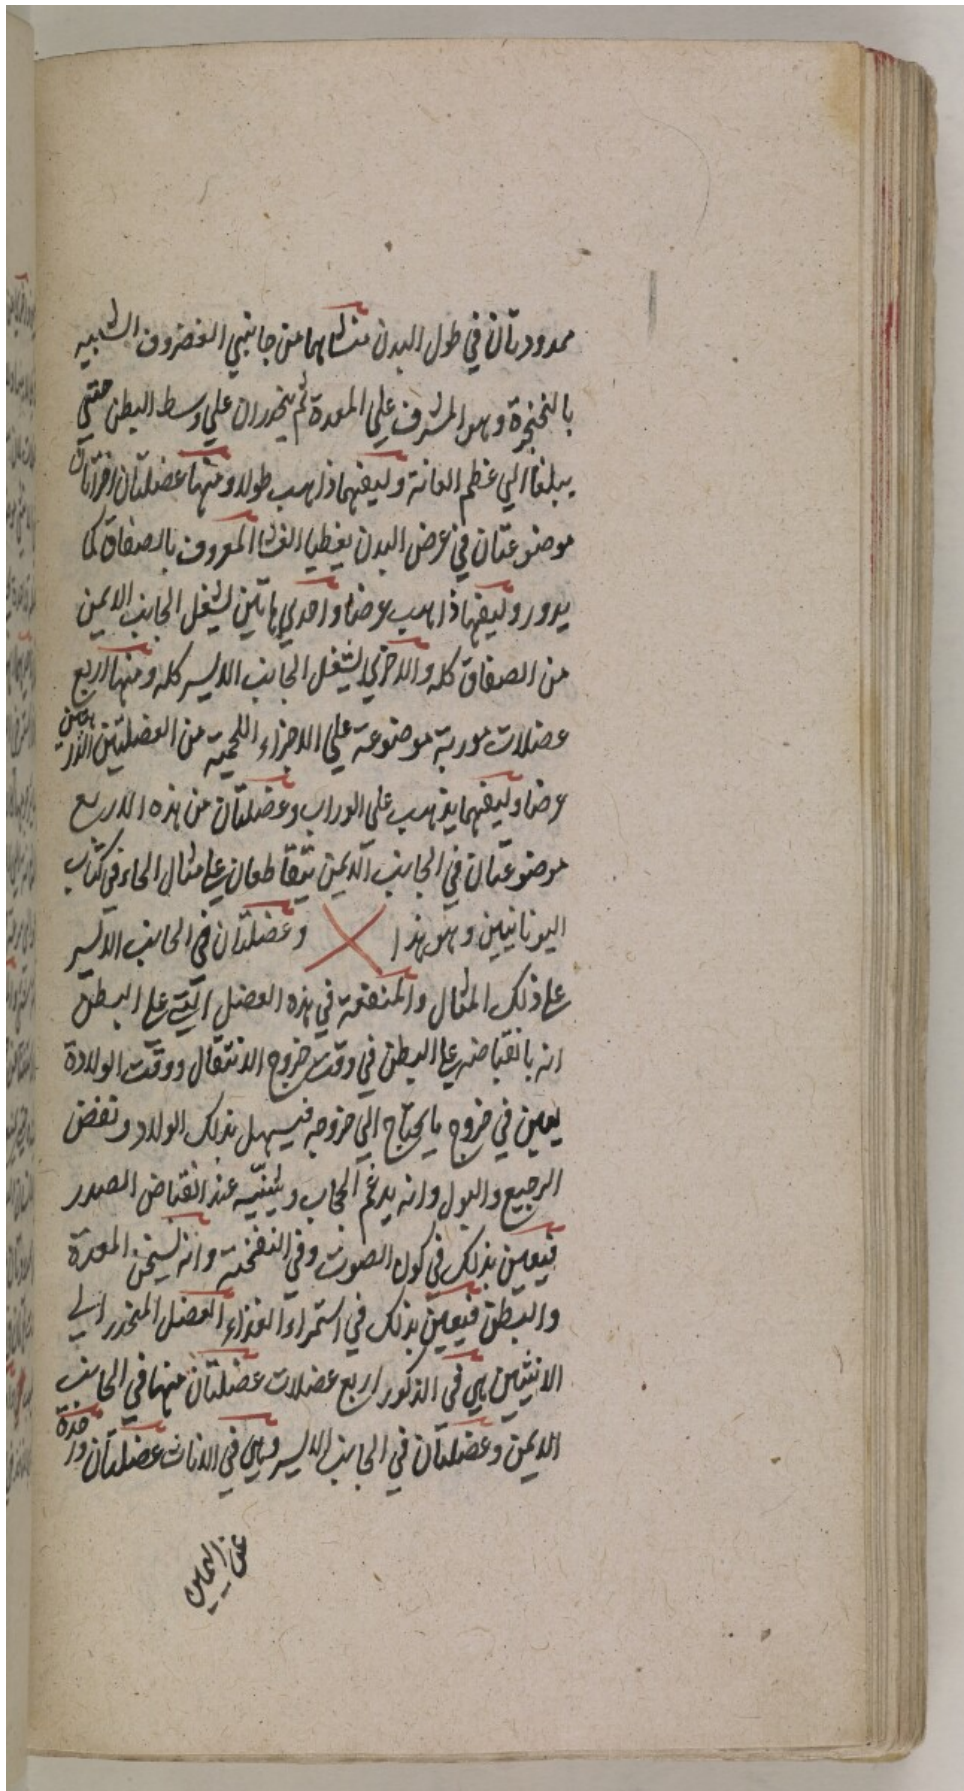 ممدودتان في طول البدن منشاهما من جانبي الغضروف الشبيه
بالخنجرة وهو المشرف علي المعدة ثم ينحدران علي وسط البطن حتي
يبلغا الي عظم العانة وليفهما ذاهب طولا ومنها عضلتان اخراتان
موضوعتان في عرض البدن يغطيا الغشا المعروف بالصفاق كما
يدور وليفها ذاهب عرضا واحدي هاتين يشغل الجانب الايمن
من الصفاق كله والاخري يشغل الجانب الايسر كله ومنها اربع
عضلات موربة موضوعة علي الاجزاء اللحمية من العضلتين الذاهبتين
عرضا وليفهما يذهب علي الوراب وعضلتان من هذه الاربع
موضوعتان في الجانب الايمن تتقاطعان علي مثال الحاء في كتاب
اليونانيين وهو هذا وعضلتان في الجانب الايسر
علي ذلك المثال والمنفعة في هذه العضل التي علي البطن
انه بانقباضه علي البطن في وقت خروج الاثقال ووقت الولادة
يعين في خروج ما يحتاج الي خروجه فيسهل بذلك الولاد ونفض
الرجيع والبول وانه يدعم الحجاب ويثبته عند انقباض الصدر
فيعين بذلك في كون الصوت وفي النفخة وانه يسخن المعدة
والبطن فيعين بذلك في استمراء الغذاء العضل المنحدر الي
الانثيين هي في الذكور اربع عضلات عضلتان منها في الجانب
الايمن وعضلتان في الجانب الايسر وهي في الاناث عضلتان واحدة
عن اليمين